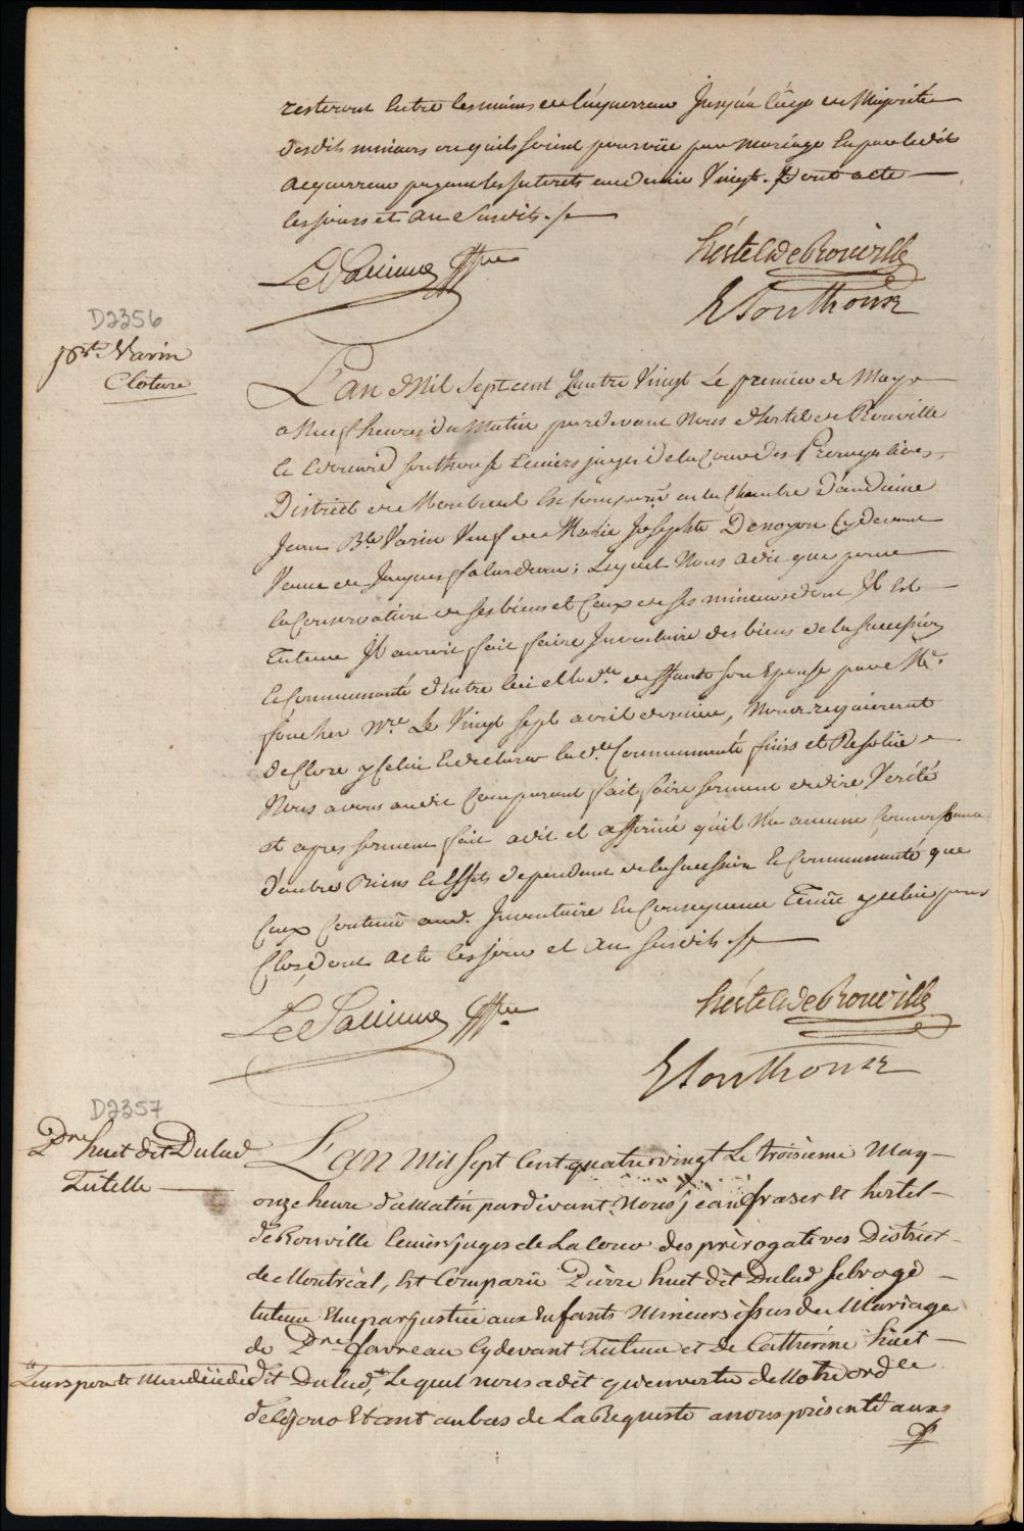 resteront entre les mains de l'aquereur Jusqu'a l'âge de Majorité
desdits mineurs ou quils soient pourvûe par mariage En par ledit
acquereur payant les Interets au denier Vingt. Dont acte
les jours et An Susdits ./.
LeSaunier Gffier
hertel de Rouville
E Southouse
D2356
Jn Bte Varin
Cloture
L'an Mil Sept cent Quatre Vingt Le premier de May
a Neuf heures du Matin pardevant Nous Hertel de Rouville
Edouard Southouse Ecuiers juges de la Cour des Prerogatives
District de Montreal Est Comparu en la Chambre d'audience
Jean Bte Varin Veuf de Marie Josephte Denoyon Cy devant
Veuve de Jacques ; Lequel Nous a dit que pour
la Conservation de ses biens et Ceux de ses mineurs dont Il Est
Tuteur Il auroit fait faire Inventaire des biens de la Succession
Et Communauté d'Entre lui et lade deffunte son Epouse par Me
foucher Nre Le Vingt Sept avril dernier, Nous requierent
de Clore ycelui Et declarer lade Communauté finis et Resolüe
Nous avons audit Comparant fait faire serment de dire Verité
et apres serment fait a dit et affirmé qu'il N'a aucune Connoissance
d'autres Biens Et Effets dependant de la Succession Et Communauté que
Ceux Contenu aud. Inventaire En Consequence Tenüe ycelui pour
Clos, dont Acte les jour et An Susdits ./.
LeSaunier Gffier
hertel de Rouville
E Southouse
D2357
Prre huet dit Dulud
Tutelle
L'an Mil Sept Cent quatre vingt Le troisieme May
onze heure du Matin pardevant Nous jean fraser Et hertel
de Rouville Ecuiers juges de La Cour des prérogatives District
de Montréal, Est Comparü Pierre huet dit Dulud Subrogé
tuteur Elu par justice aux Enfants Mineurs issus du Mariage
de Prre favreau Cydevant Tuteur et De Catherine huet
Leurs pere et Mere
dit Dulud, Le quel nous a dit qu'en vertu de Notre ordce
de ce jour Etant au bas de La Requeste a nous présenté aux